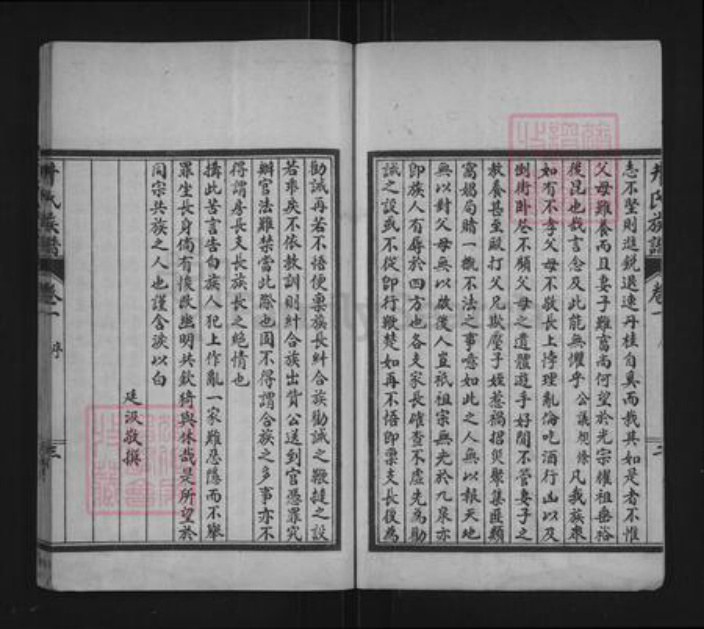 志不堅則進銳退速丹桂自具而我其如是者不惟
父母難養而且妻子難富尚何望於光宗耀祖垂裕
後昆也哉言念及此能無懼乎公議規條凡我族眾
如有不孝父母不敬長上悖理亂倫吃酒行凶以及
倒街臥巷不顧父母之遺體遊手好閒不管妻子之
教養甚至毆打父兄欺壓子姪惹禍招災聚集匪類
窩娼局賭一概不法之事噫如此之人無以報天地
無以對父母無以啟後人豈祇祖宗無光於九泉亦
即族人有辱於四方也各支家長確查不虛先為勸
誡之設或不從即行鞭楚如再不悟即稟支長復為
勸誡再若不悟便稟族長糾合族勸誡之鞭撻之設
若乖戾不依教訓則糾合族出貲公送到官憑罪究
辦官法難禁當此際也固不得謂合族之多事亦不
得謂房長支長族長之絕情也
搆此苦言告白族人犯上作亂一家難忍隱而不舉
罪坐長身倘有悛改幽明共欽猗與休哉是所望於
同宗共族之人也謹含淚以白
廷汲敬撰
卷一
序
三